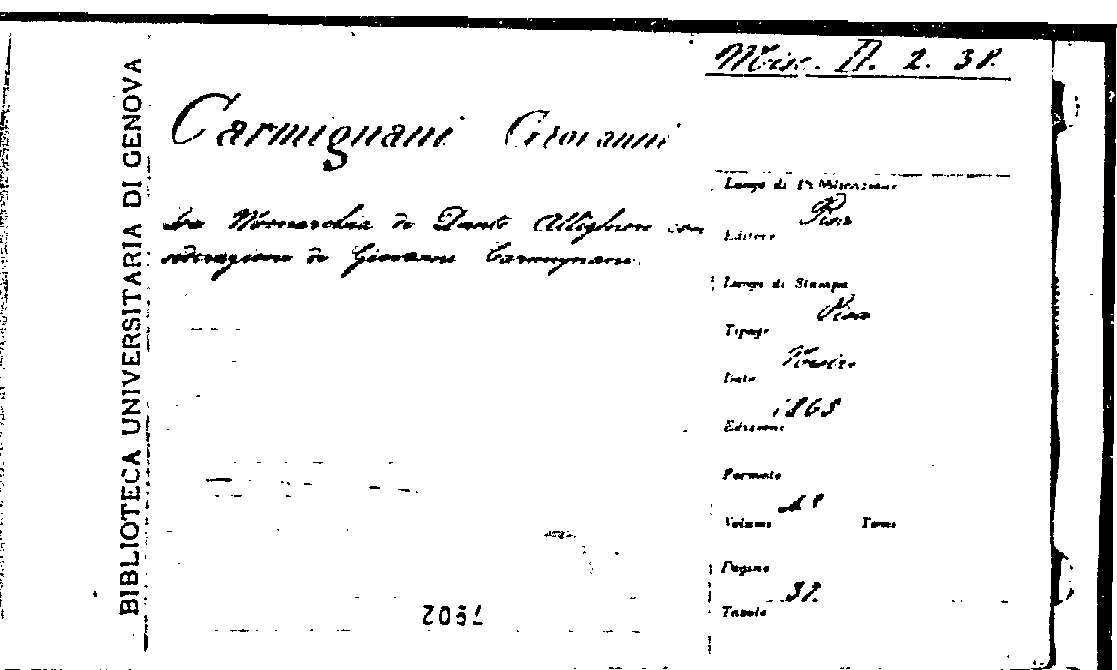 BIBLIOTECA UNIVERSITARIA DI GENOVA
Misc. II. 2. 38.
Carmignani Giovanni
La Monarchia di Dante Allighieri con
siderazioni di Giovanni Carmignani.
Luogo di Pubblicazione
Pisa
Editore
Luogo di Stampa
Pisa
Tipogr.
Nistri
Data
1865
Edizione
Formato
Volume Tomo
Pagine
Tavole